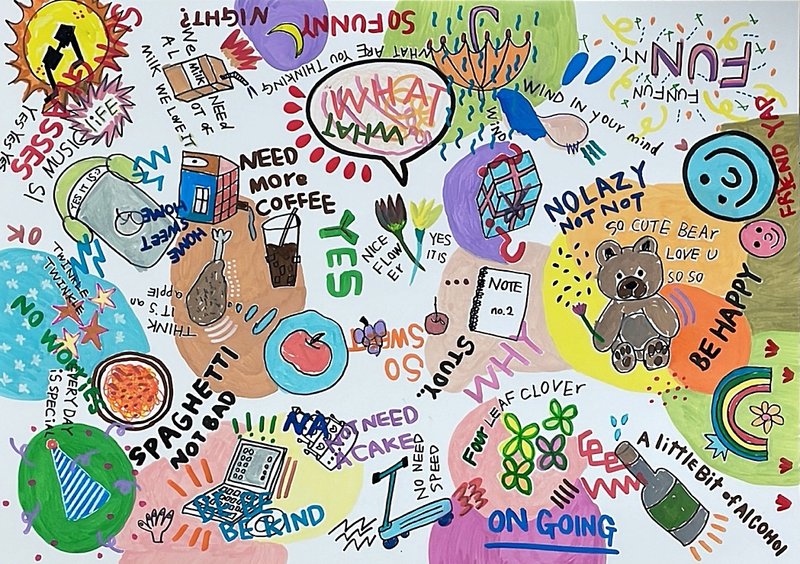 NIGHT?
SO FUNNY
WHAT ARE YOU THINKING
FUNNY
FUN
FUNFUN
SUNGLASSES
LIFE
YES YES YES
IS MUSIC
We
Need
A LOT of
milk we love it
milk
WHAT
WIND IN your mind
WIND
FRIEND YAP
YES IT IS
NEED
more
COFFEE
HOME
SWEET
HOME
OK
YES
NICE
FLOW
ER
YES
IT IS
NO LAZY
NOT NOT
SO CUTE BEAr
LOVE U
SO SO
BE HAPPY
TWINKLE
TWINKLE
THINK
IT'S an
apple
NOTE
no.2
SO
SWEET
STUDY..
WHY
NO WORRIES
EVERY DAY
IS SPECIAL
SPAGHETTI
NOT BAD
NA
NOT NEED
A CAKE
NO NEED
SPEED
FOUR LEAF CLOVEr
BE BE
BE KIND
ON GOING
A little Bit of AlCOHOl